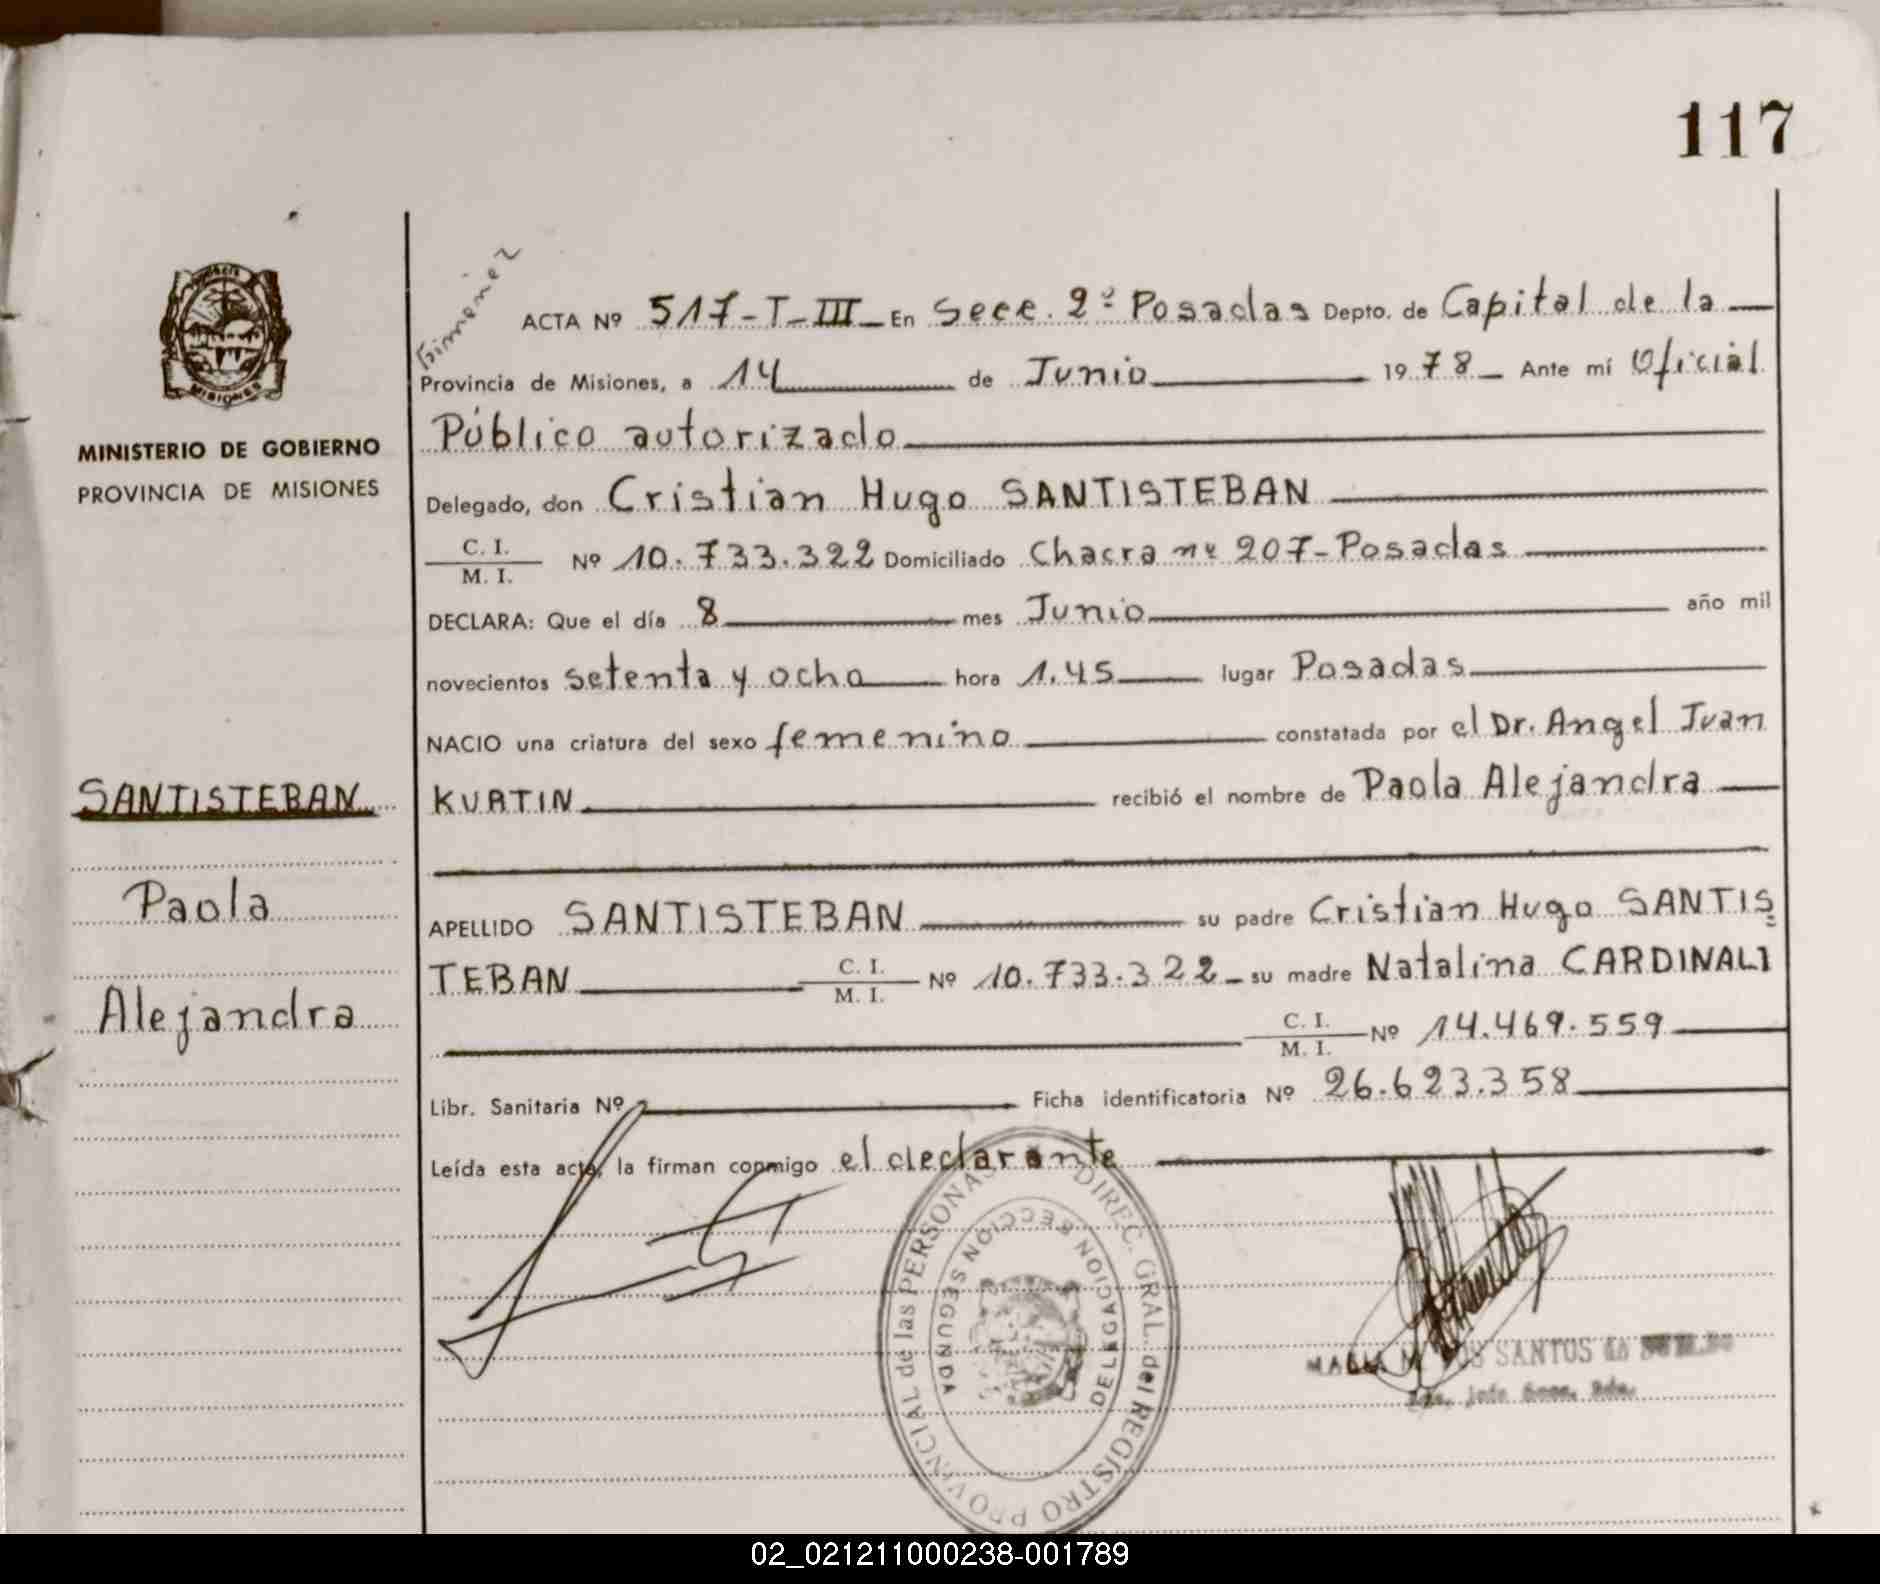 117
MISIONES
MINISTERIO DE GOBIERNO
PROVINCIA DE MISIONES
SANTISTEBAN
Paola
Alejandra
ACTA Nº 517-T-III En Secc. 2º Posadas Depto. de Capital de la
Provincia de Misiones, a 14 de Junio 1978 Ante mí Oficial
Público autorizado
Delegado, don Cristian Hugo SANTISTEBAN
C. I.
M. I. Nº 10.733.322 Domiciliado Chacra nº 207-Posadas
DECLARA: Que el día 8 mes Junio año mil
novecientos setenta y ocho hora 1.45 lugar Posadas
NACIO una criatura del sexo femenino constatada por el Dr. Angel Juan
KURTIN recibió el nombre de Paola Alejandra
APELLIDO SANTISTEBAN su padre Cristian Hugo SANTIS
TEBAN C. I. M. I. Nº 10.733.322 su madre Natalina CARDINALI
C. I. M. I. Nº 14.469.559
Libr. Sanitaria Nº Ficha identificatoria Nº 26.623.358
Leída esta acta, la firman conmigo el declarante
DIREC. GRAL. del REGISTRO PROVINCIAL de las PERSONAS
DELAGACION SECCION SEGUNDA
DOS SANTOS
02_021211000238-001789